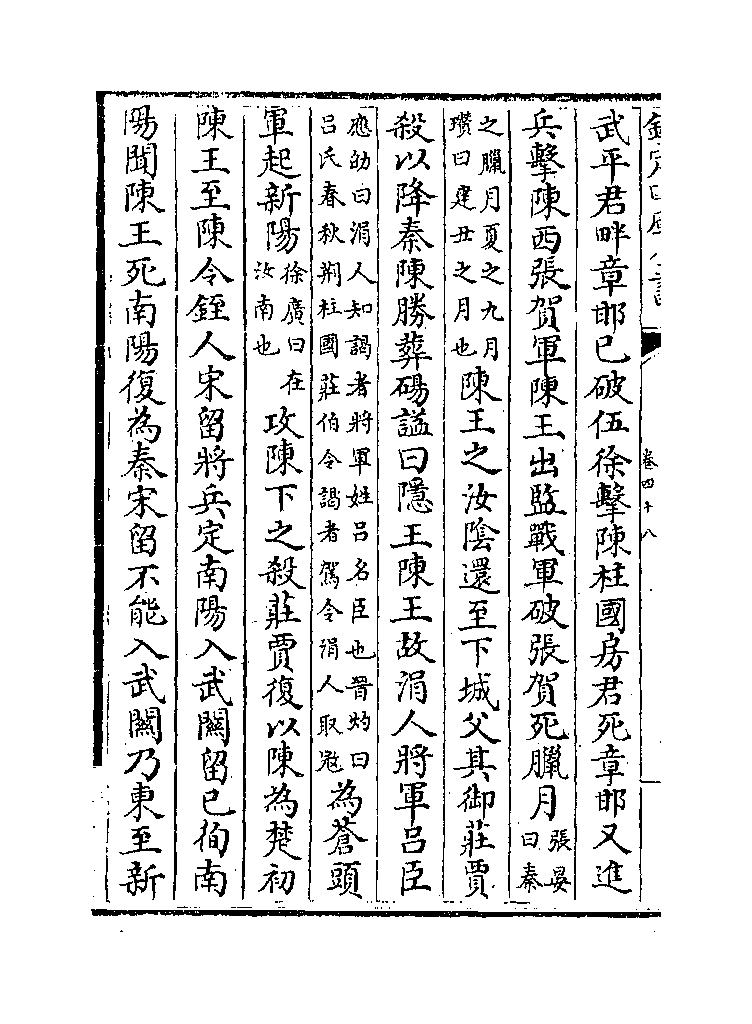 欽定四庫全書
卷四十八
武平君畔章邯已破伍徐擊陳柱國房君死章邯又進
兵擊陳西張賀軍陳王出監戰軍破張賀死臘月張晏曰秦
之臘月夏之九月瓚曰建丑之月也陳王之汝陰還至下城父其御莊賈
殺以降秦陳勝葬碭謚曰隱王陳王故涓人將軍呂臣
應劭曰涓人如謁者將軍姓呂名臣也晉灼曰呂氏春秋荆柱國莊伯令謁者駕令涓人取冠為蒼頭
軍起新陽徐廣曰在汝南也攻陳下之殺莊賈復以陳為楚初
陳王至陳令銍人宋留將兵定南陽入武關留已徇南
陽聞陳王死南陽復為秦宋留不能入武關乃東至新